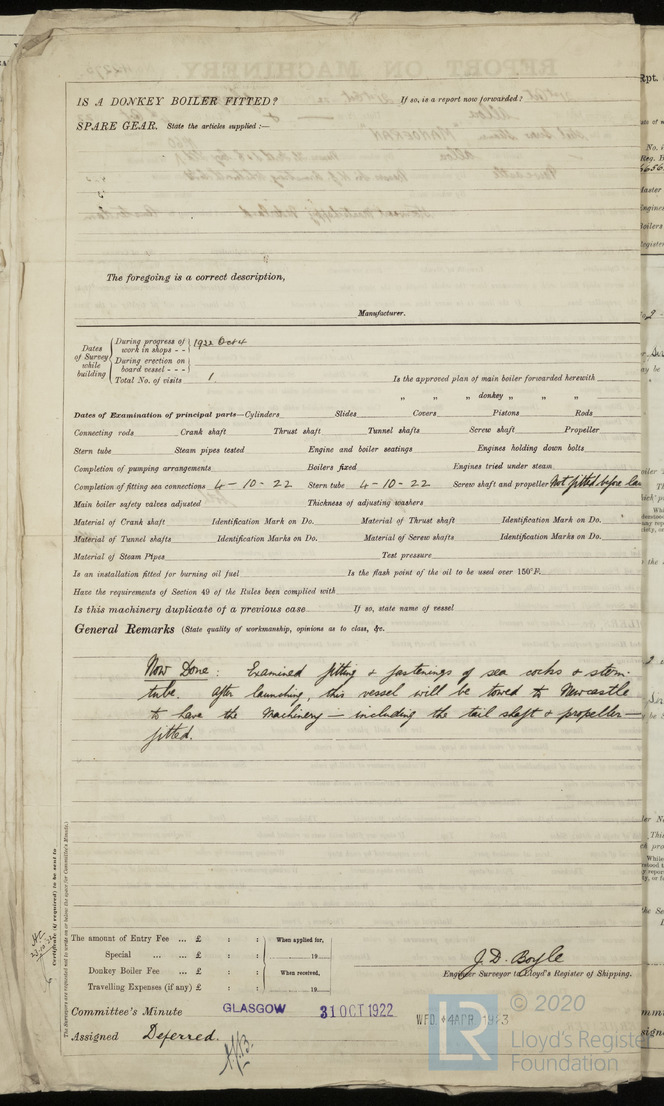 IS A DONKEY BOILER FITTED? If so, is a report now forwarded?
SPARE GEAR. State the articles supplied:—
The foregoing is a correct description,
Manufacturer.
Dates of Survey while building
During progress of work in shops - - 1922 Oct 4
During erection on board vessel - - -
Total No. of visits 1.
Is the approved plan of main boiler forwarded herewith
" " " donkey " " "
Dates of Examination of principal parts—Cylinders Slides Covers Pistons Rods
Connecting rods Crank shaft Thrust shaft Tunnel shafts Screw shaft Propeller
Stern tube Steam pipes tested Engine and boiler seatings Engines holding down bolts
Completion of pumping arrangements Boilers fixed Engines tried under steam
Completion of fitting sea connections 4 - 10 - 22 Stern tube 4 - 10 - 22 Screw shaft and propeller Not fitted before lau
Main boiler safety valves adjusted Thickness of adjusting washers
Material of Crank shaft Identification Mark on Do. Material of Thrust shaft Identification Mark on Do.
Material of Tunnel shafts Identification Marks on Do. Material of Screw shafts Identification Marks on Do.
Material of Steam Pipes Test pressure
Is an installation fitted for burning oil fuel Is the flash point of the oil to be used over 150°F.
Have the requirements of Section 49 of the Rules been complied with
Is this machinery duplicate of a previous case If so, state name of vessel
General Remarks (State quality of workmanship, opinions as to class, &c.
Now Done: Examined fitting & fastenings of sea cocks & stern
tube. After launching, this vessel will be towed to Newcastle
to have the Machinery — including the tail shaft & propeller —
fitted.
Certificate (if required) to be sent to
(The Surveyors are requested not to write on or below the space for Committee's Minute.)
The amount of Entry Fee ... £ : : When applied for,
Special ... ... £ : : 19
Donkey Boiler Fee ... £ : : When received,
Travelling Expenses (if any) £ : : 19
J. D. Boyle
Engineer Surveyor to Lloyd's Register of Shipping.
Committee's Minute GLASGOW 31 OCT 1922 WED. 4 APR 1923
Assigned Deferred.
© 2020
Lloyd's Register
Foundation
LR